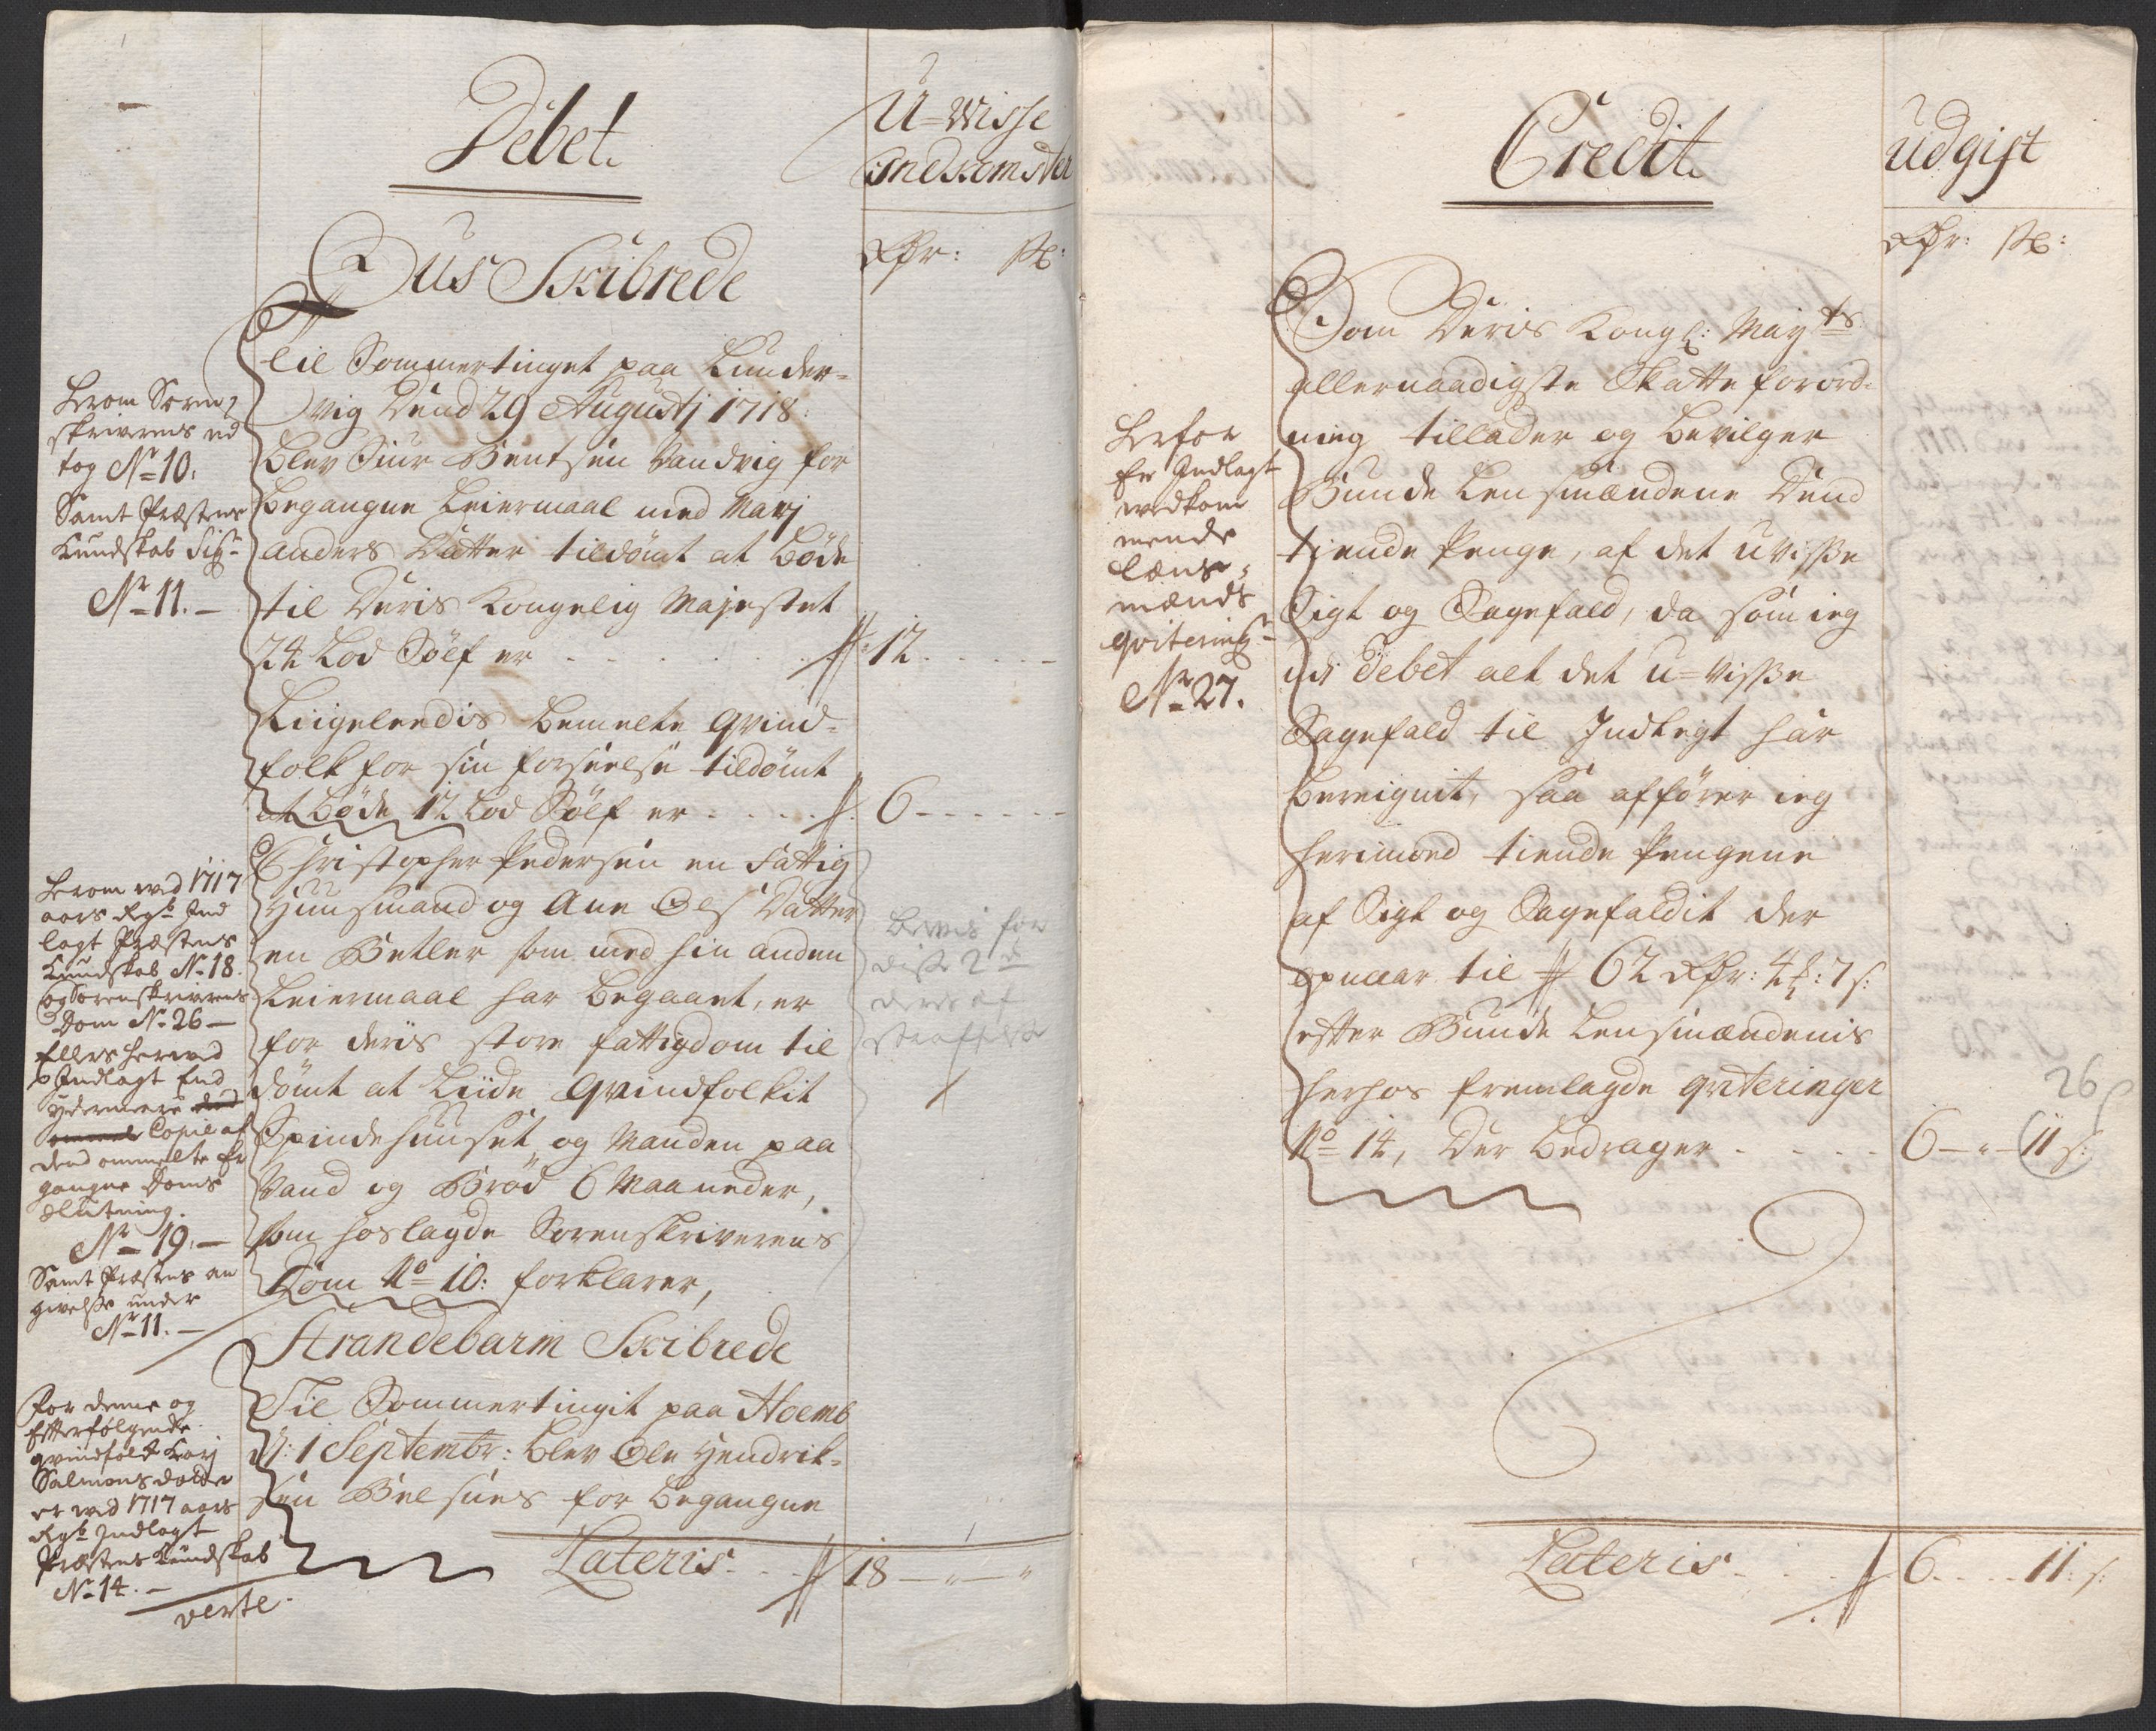 Debet.
U=Wisse
Indkomster
Rdr: s:
Ous Skibrede
Til Sommertinget paa Lunder=
vig Dend 29 Augustj 1718:
blev Siur Bentsen Sandvig for
begangne Leiermaal med Marj
Anders Datter tildömt at böde
til Deris Kongelig Majestet
24 Lod Sölf er - - - - - 12 - - -
Liigeleedis bemelte qvind=
folk for sin forseelse tildömt
at böde 12 Lod Sölf er - - - - 6 - - - - -
Christopher Pedersen en fattig
Huusmand og Ane Ols Datter
en Betler som med hin anden
Leiermaal har begaaet, er
for deris store fattigdom til
dömt at liide qvindfolkit
Spindehuuset, og Manden paa
Vand og Bröd 6 Maaneder,
som hoslagde Sorenskriverens
Dom No 10: forklarer,
Strandebarm Skibrede
Til Sommertingit paa Hoemb
d: 1 Septembr: blev Ole Hendrik=
sen Belsnes for begangne
Lateris - - 18 - " - "
Herom Soren
skriverens ud
tog No 10:
Samt Præstens
Kundskab Sig
No 11. -
Herom ved 1717
aars Regb Ind
lagt Præstens
Kundskab No 18.
og Sorenskriverens
Dom No 26 -
Ellers herved
Indlagt End
ydermeere
Copie af
dend ommelte Er
gangne Doms
slutning.
No 19. -
Samt Præstens an
givelsse under
No 11. -
For denne og
Efterfølgende
qvindfolk Karj
Salmonsdatter
er ved 1717 aars
Regb Indlagt
Præstens Kundskab
No 14. -
verte.
Bevis for
disse 2de
deris af
straffelse
Credit.
Udgift
Rdr: s:
Som Deris Kongl: Mayts
allernaadigste Skatte forord=
ning tillader og bevilger
Bunde Lensmændene Dend
tiende Penge, af det uvisse
Sigt og Sagefald, da som ieg
udi Debet alt det u=visse
Sagefald til Indtegt har
bereignit, saa afförer ieg
herimod tiende Pengene
af Sigt og Sagefaldit der
opnaar til 62 Rdr: 4 : 7 s:
efter Bunde Lensmændenis
herhos fremlagde qviteringer
No 14, Der bedrager - - - - 6 - " - 11 s:
26
Herfor
Er Indlagt
vedkom
mende
Lens=
mænds
qvitering
No 27.
Lateris - - - 6 - - - 11 s: